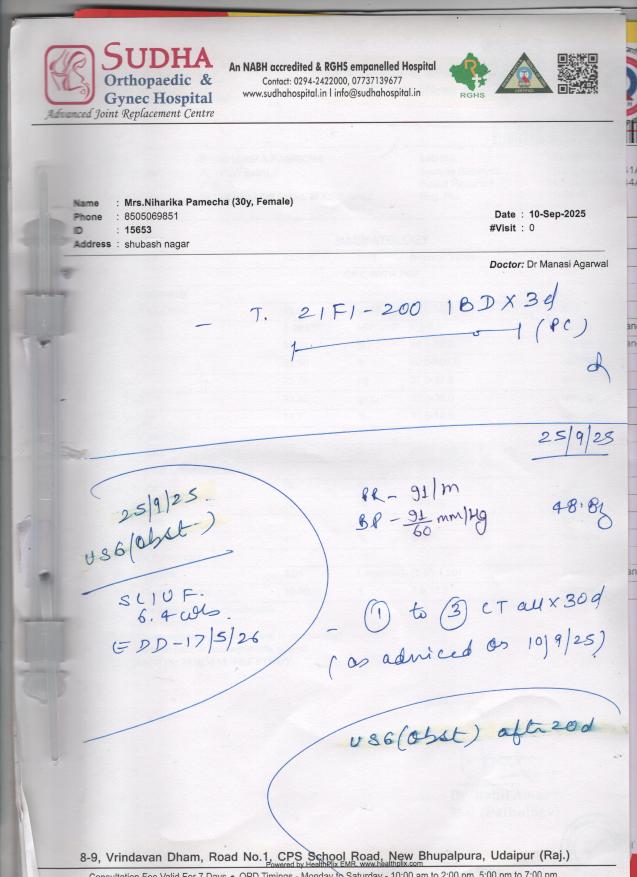 SUDHA
Orthopaedic &
Gynec Hospital
Advanced Joint Replacement Centre
An NABH accredited & RGHS empanelled Hospital
Contact: 0294-2422000, 07737139677
www.sudhahospital.in | info@sudhahospital.in
RGHS
Name : Mrs.Niharika Pamecha (30y, Female)
Phone : 8505069851
ID : 15653
Address : shubash nagar
Date : 10-Sep-2025
#Visit : 0
Doctor: Dr Manasi Agarwal
- T. ZIFI-200 1BD X 3d
(PC)
25/9/25
25/9/25
USG(Obst)
SLIUF.
6.4 wks.
EDD-17/5/26
PR - 91/m
BP - 91/60 mm/Hg
48.8
- ① to ③ CT all x 30d
(as adviced on 10/9/25)
USG(Obst) after 20d
8-9, Vrindavan Dham, Road No.1, CPS School Road, New Bhupalpura, Udaipur (Raj.)
Powered by HealthPlix EMR. www.healthplix.com
Consultation Fee Valid For 7 Days • OPD Timings - Monday to Saturday - 10:00 am to 2:00 pm, 5:00 pm to 7:00 pm